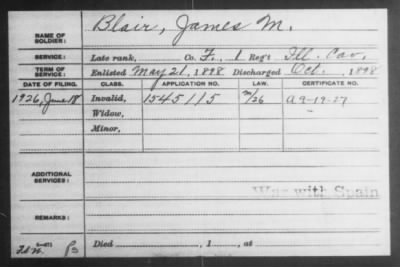 NAME OF SOLDIER: Blair, James M.
SERVICE: Late rank, Co. F, 1 Reg't Ill. Cav.
TERM OF SERVICE: Enlisted May 21, 1898 Discharged Oct. , 1898
DATE OF FILING. CLASS. APPLICATION NO. LAW. CERTIFICATE NO.
1926, June 18 Invalid, 1545115 m/26 A 9-19-27
Widow,
Minor,
ADDITIONAL SERVICES:
War with Spain
REMARKS:
Died , 1 , at